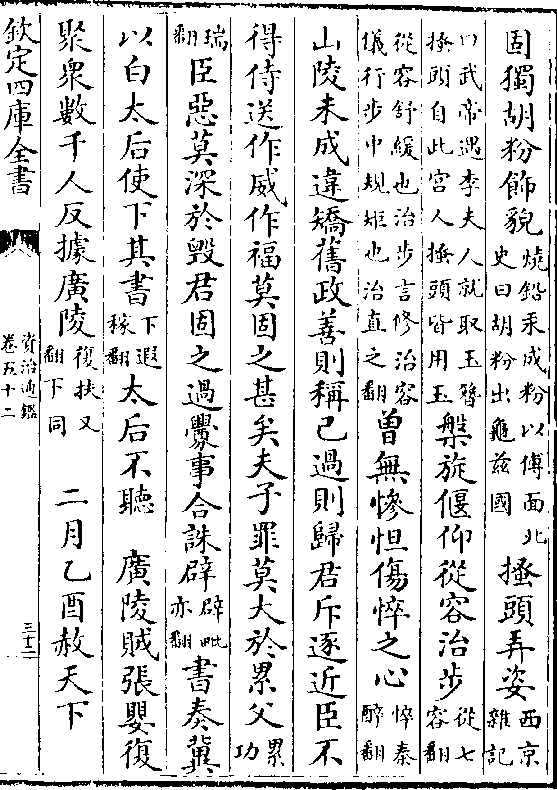 固獨胡粉飾貌燒鉛汞成粉以傅面北史曰胡粉出龜兹國搔頭弄姿西京雜記
曰武帝遇李夫人就取玉簪搔頭自此宫人搔頭皆用玉槃旋偃仰從容治步從七容翻
從容舒緩也治步言修治容儀行步中規矩也治直之翻曾無慘怛傷悴之心悴秦醉翻
山陵未成違矯舊政善則稱已過則歸君斥逐近臣不
得侍送作威作福莫固之甚矣夫子罪莫大於累父累功
瑞翻臣惡莫深於毁君固之過釁事合誅辟辟毗亦翻書奏冀
以白太后使下其書下遐稼翻太后不聽　廣陵賊張嬰復
聚衆數千人反據廣陵復扶又翻下同　二月乙酉赦天下
欽定四庫全書
資治通鑑
卷五十二
三十二